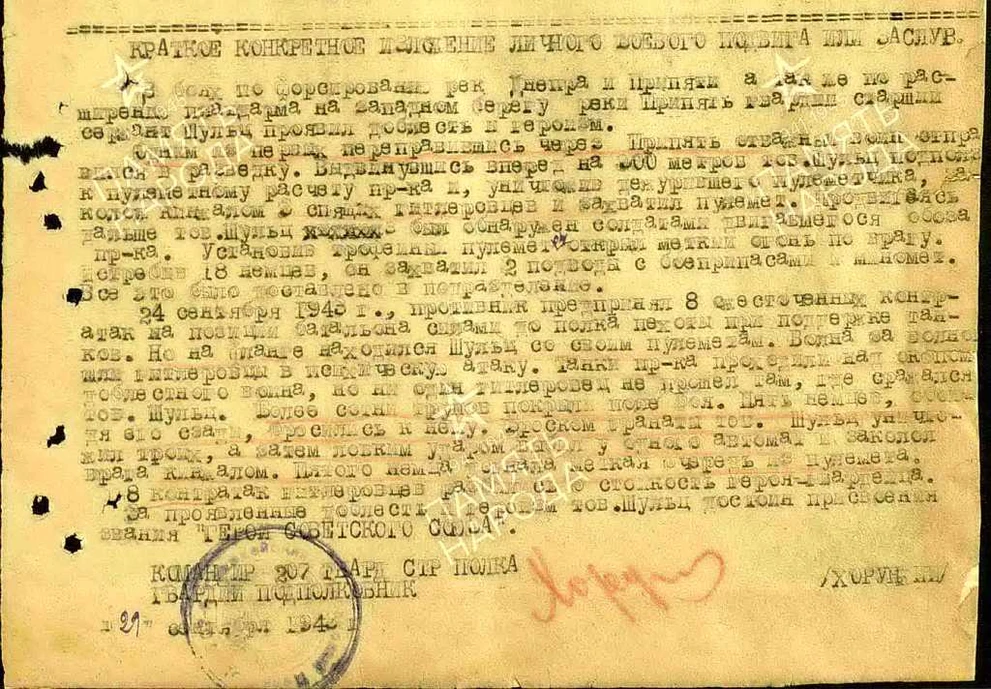 КРАТКОЕ КОНКРЕТНОЕ ИЗЛОЖЕНИЕ ЛИЧНОГО БОЕВОГО ПОДВИГА ИЛИ ЗАСЛУГ.
В боях по форсированию рек Днепра и Припяти а так же по рас-
ширению плацдарма на западном берегу реки Припять гвардии старший
сержант Шульц проявил доблесть и героизм.
Одним из первых переправившись через Припять отважный воин отпра
вился в разведку. Выдвинувшись вперед на 300 метров тов.Шульц подполз
к пулеметному расчету пр-ка и, уничтожив дежурившего пулеметчика, за-
колол кинжалом 3 спящих гитлеровцев и захватил пулемет. Продвигаясь
дальше тов.Шульц был обнаружен солдатами двигавшегося обоза
пр-ка. Установив трофейный пулемет, открыл меткий огонь по врагу.
Истребив 18 немцев, он захватил 2 подводы с боеприпасами и миномет.
Все это было доставлено в подразделение.
24 сентября 1943 г., противник предпринял 8 ожесточенных контр-
атак на позиции батальона силами до полка пехоты при поддержке тан-
ков. Но на фланге находился Шульц со своим пулеметам. Волна за волной
шли гитлеровцы в психическую атаку. Танки пр-ка проходили над окопом
доблестного воина, но ни один гитлеровец не прошел там, где сражался
тов. Шульц. Более сотни трупов покрыли поле боя. Пять немцев,
его сзади, бросились к нему. Броском гранаты тов. Шульц уничто-
жил троих, а затем ловким ударом выбил у одного автомат и заколол
врага кинжалом. Пятого немца догнала меткая очередь из пулемета.
8 контратак гитлеровцев о стойкость героя-гвардейца.
За проявленные доблесть и героизм тов.Шульц достоин присвоения
звания "ГЕРОЙ СОВЕТСКОГО СОЮЗА".
КОМАНДИР 207 ГВАРД СТР ПОЛКА
ГВАРДИИ ПОДПОЛКОВНИК /ХОРУНЖИЙ/
"29" сентября 1943 г
ПАМЯТЬ
НАРОДА
ПАМЯТЬ
НАРОДА
ПАМЯТЬ
НАРОДА